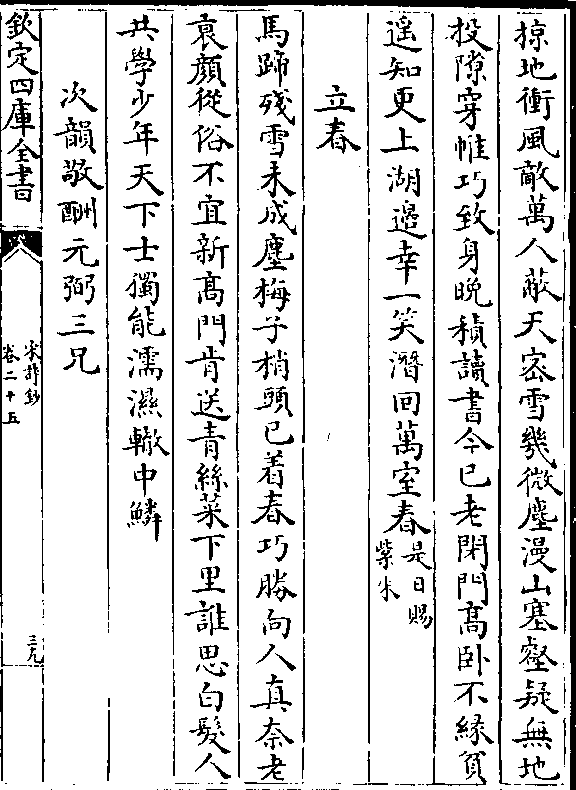 掠地衝風敵萬人蔽天密雪幾微塵漫山塞壑疑無地
投隙穿帷巧致身晚積讀書今已老閉門髙卧不緣貧
遥知更上湖邉幸一笑潛回萬室春是日賜
紫米
立春
馬蹄殘雪未成塵梅子梢頭已着春巧勝向人真奈老
衰顔從俗不宜新髙門肯送青絲菜下里誰思白髮人
共學少年天下士獨能濡濕轍中鱗
次韻敬酬元弼三兄
欽定四庫全書
宋詩鈔
卷二十五
三九